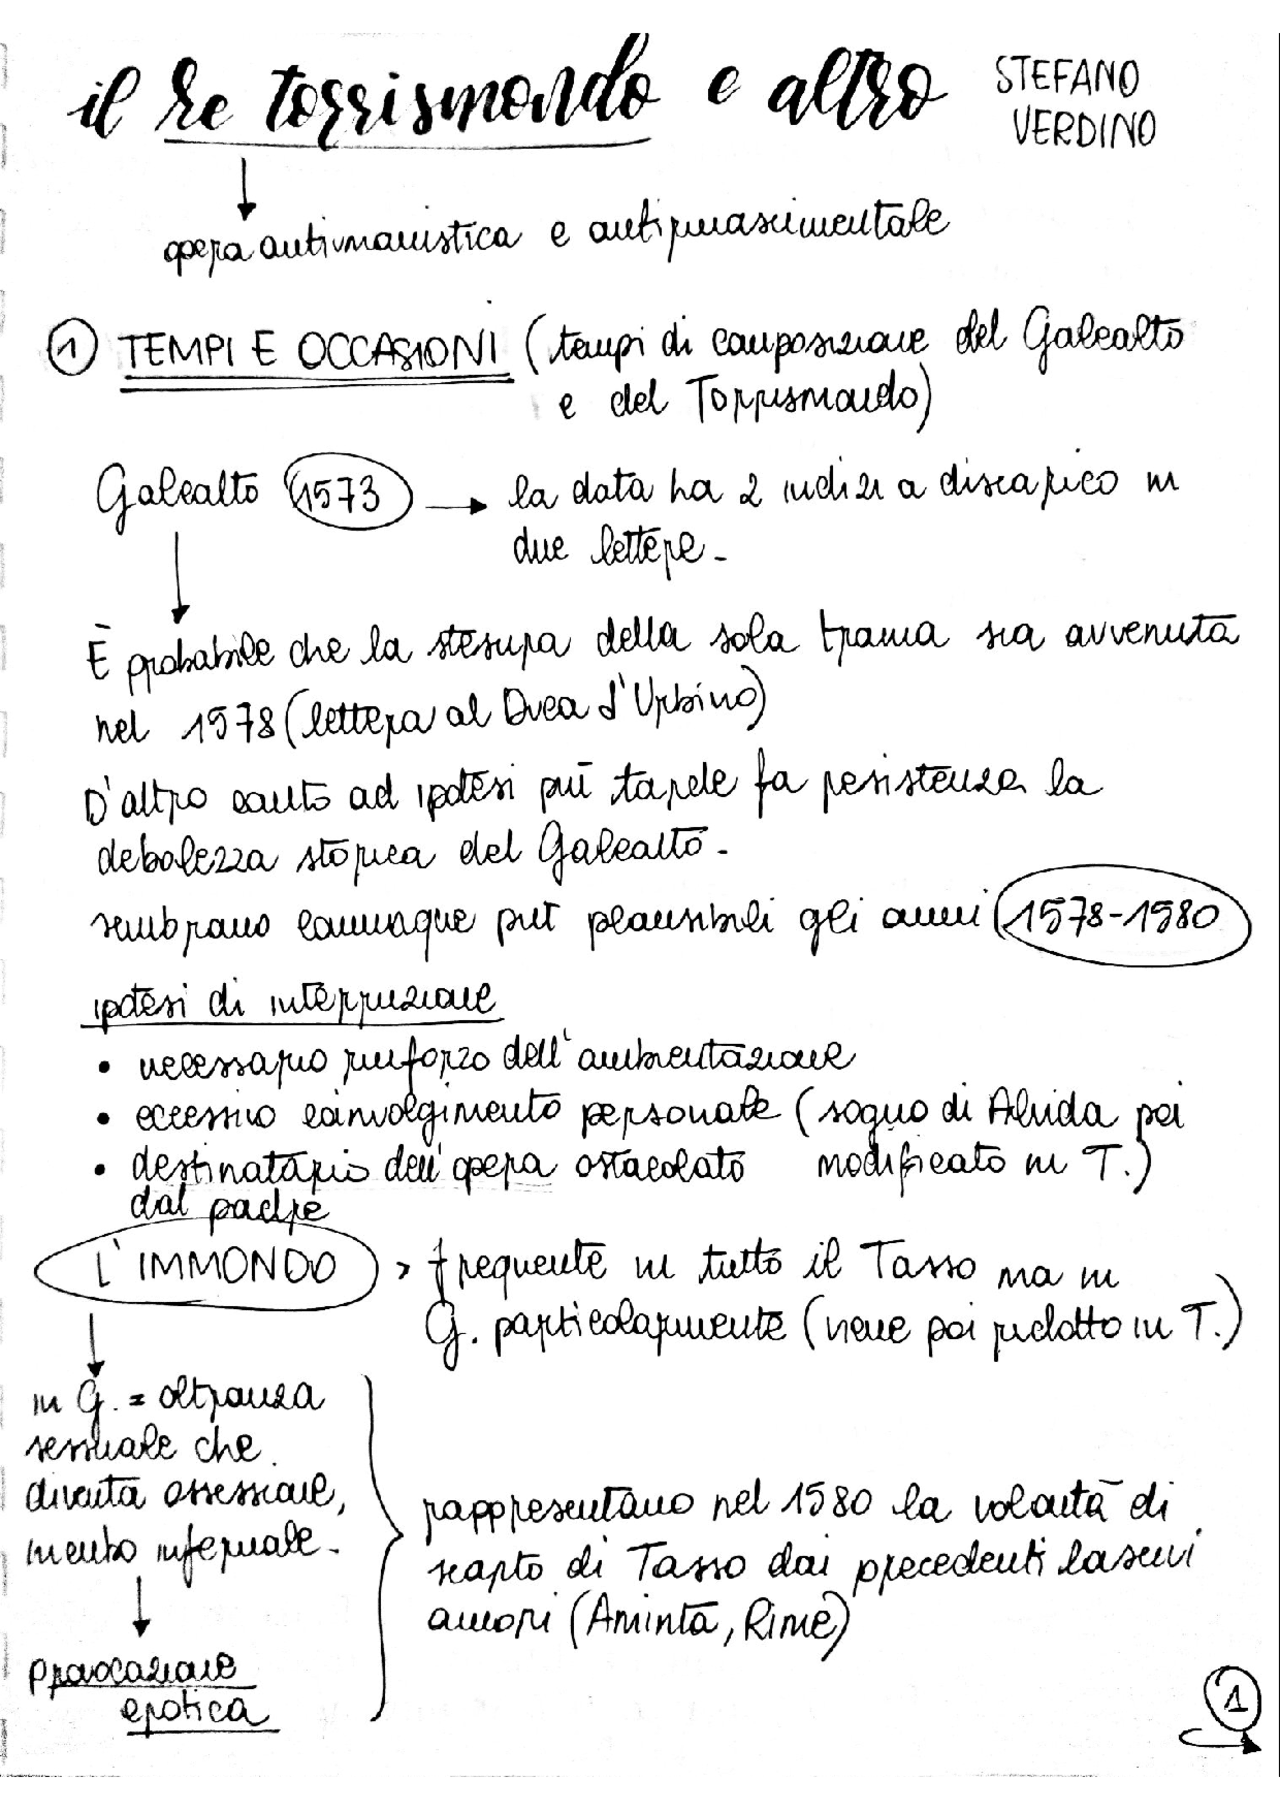 il Re torrismondo e altro STEFANO
VERDINO
opera antiumanistica e antirinascimentale
1 TEMPI E OCCASIONI (tempi di composizione del Galealto
e del Torrismondo)
Galealto 1573 → la data ha 2 indizi a discapico in
due lettere -
È probabile che la stesura della sola trama sia avvenuta
nel 1578 (lettera al Duca d'Urbino)
D'altro canto ad ipotesi più tarde fa resistenza la
debolezza storica del Galealto -
sembrano comunque più plausibili gli anni 1578-1580
ipotesi di interruzione
• necessario rinforzo dell'ambientazione
• eccessivo coinvolgimento personale (sogno di Alvida poi
modificato in T.)
• destinatario dell'opera ostacolato
dal padre
L'IMMONDO > frequente in tutto il Tasso ma in
G. particolarmente (viene poi ridotto in T.)
in G. = oltranza
sessuale che
diventa ossessione,
incubo infernale -
provocazione
erotica
rappresentano nel 1580 la volontà di
scarto di Tasso dai precedenti lascivi
amori (Aminta, Rime)
1